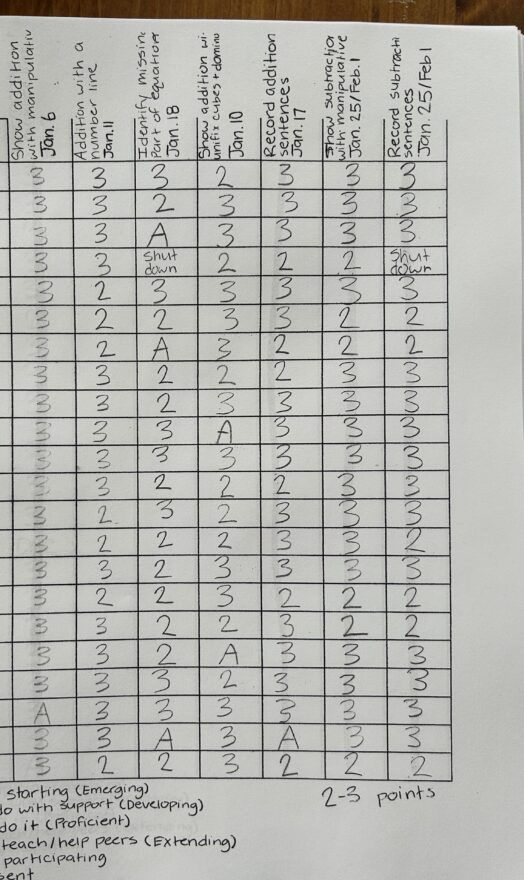 Show addition with manipulativ Jan. 6
Addition with a number line Jan. 11
Identify missin part of equation Jan. 18
Show addition wi unifix cubes + domino Jan. 10
Record addition sentences Jan. 17
Show subtraction with manipulative Jan. 25/Feb. 1
Record subtracti sentences Jan. 25/Feb 1
3 3 3 2 3 3 3
3 3 2 3 3 3 3
3 3 A 3 3 3 3
3 3 shut down 2 2 2 Shut down
3 2 3 3 3 3 3
3 2 2 3 3 2 2
3 2 A 3 2 2 2
3 3 2 2 2 3 3
3 3 2 3 3 3 3
3 3 3 A 3 3 3
3 3 3 3 3 3 3
3 3 2 2 2 3 3
3 2 3 2 3 3 3
3 2 2 2 3 3 2
3 3 2 3 3 3 3
3 2 2 3 2 2 2
3 3 2 2 3 2 2
3 3 2 A 3 3 3
3 3 3 2 3 3 3
A 3 3 3 3 3 3
3 3 A 3 A 3 3
3 2 2 3 2 2 2
starting (Emerging)
do with support (Developing)
do it (Proficient)
teach/help peers (Extending)
participating
sent
2-3 points